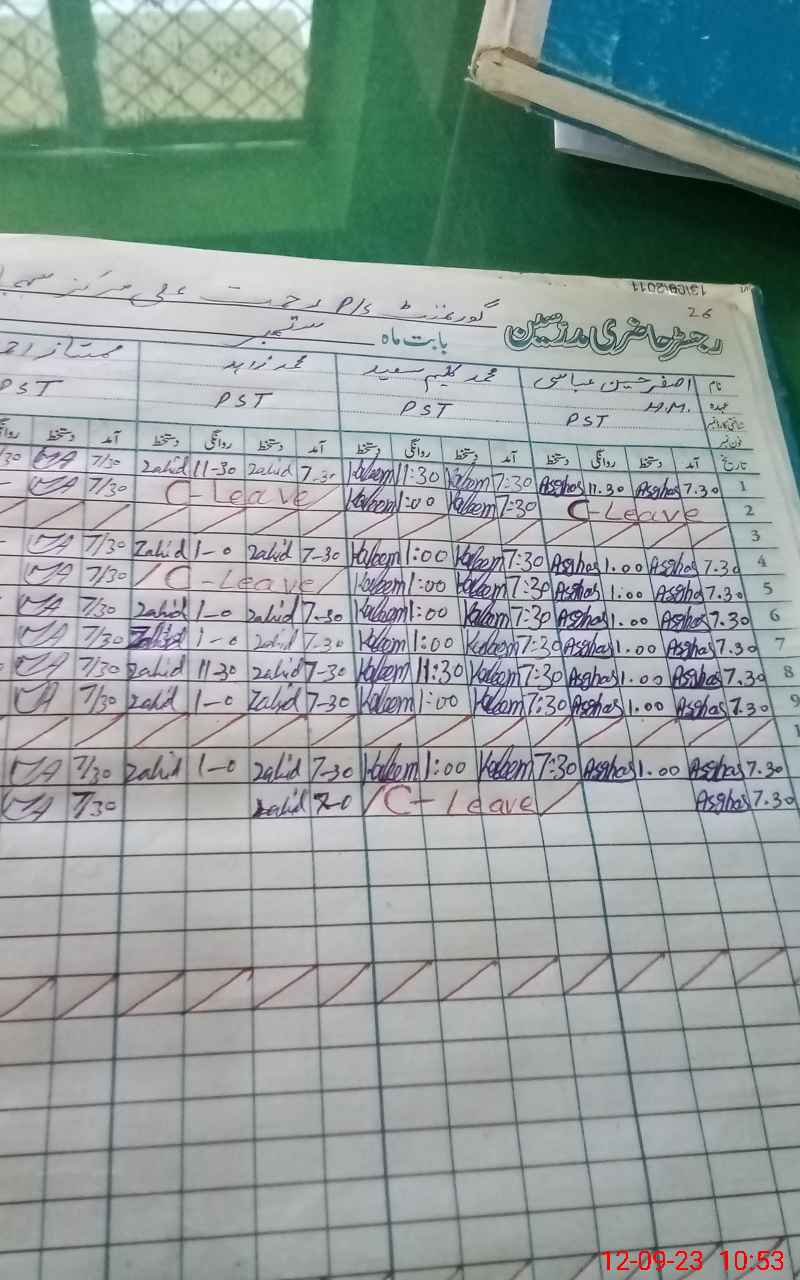 26
رجسٹر حاضری مدرسین
گورنمنٹ P/s رحمت علی مرکز
بابت ماہ ستمبر
نام اصغر حسین عباسی محمد کلیم سعید محمد زاہد ممتاز
عہدہ H.M. PST PST PST PST
شناختی کارڈ نمبر
فون نمبر
تاریخ آمد دستخط روانگی دستخط آمد دستخط روانگی دستخط آمد دستخط روانگی دستخط آمد دستخط
1 7.30 Asghar 11.30 Asghar 7:30 Kaleem 11:30 Kaleem 7-30 zahid 11-30 zahid 7/30
2 C-Leave 7:30 Kaleem 1:00 Kaleem C-Leave 7/30
3
4 7.30 Asghar 1.00 Asghar 7:30 Kaleem 1:00 Kaleem 7-30 zahid 1-0 Zahid 7/30
5 7.30 Asghar 1:00 Asghar 7:30 Kaleem 1:00 Kaleem C-Leave 7/30
6 7.30 Asghar 1.00 Asghar 7:30 Kaleem 1:00 Kaleem 7-30 zahid 1-0 zahid 7/30
7 7.30 Asghar 1.00 Asghar 7:30 Kaleem 1:00 Kaleem 7-30 zahid 1-0 Zahid 7/30
8 7.30 Asghar 1.00 Asghar 7:30 Kaleem 11:30 Kaleem 7-30 zahid 11-30 zahid 7/30
9 7.30 Asghar 1.00 Asghar 7:30 Kaleem 1:00 Kaleem 7-30 Zahid 1-0 zahid 7/30
1
7.30 Asghar 1.00 Asghar 7:30 Kaleem 1:00 Kaleem 7-30 zahid 1-0 zahid 7/30
7.30 Asghar C-Leave 7-0 zahid 7/30
12-09-23 10:53